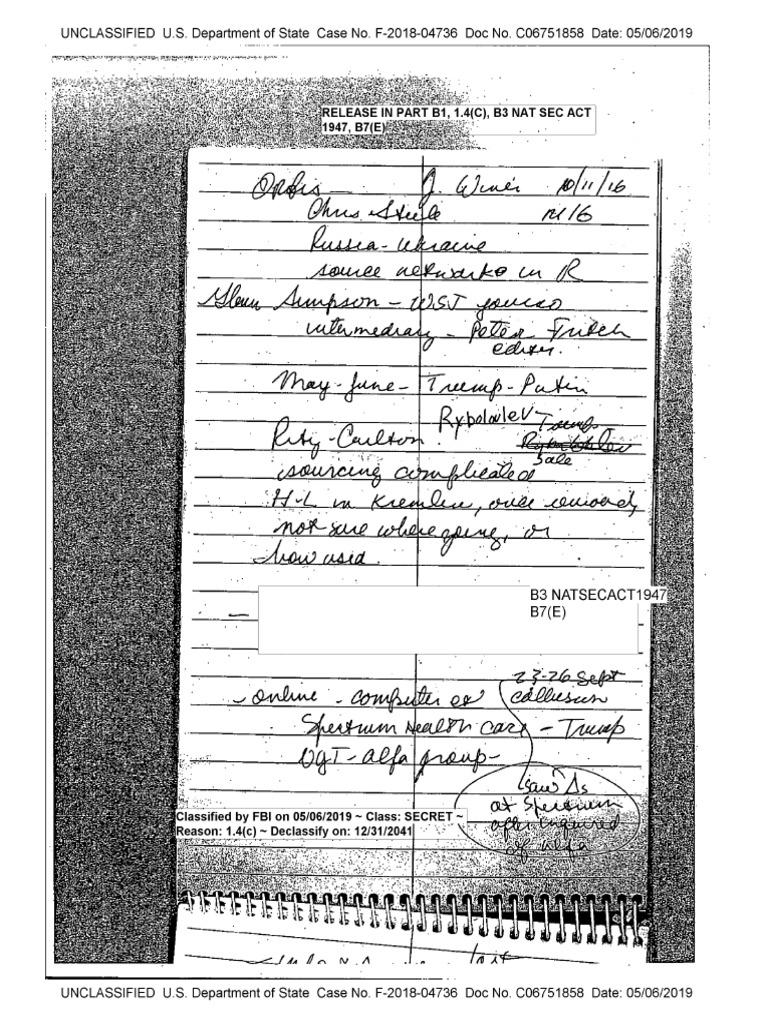 UNCLASSIFIED U.S. Department of State Case No. F-2018-04736 Doc No. C06751858 Date: 05/06/2019
RELEASE IN PART B1, 1.4(C), B3 NAT SEC ACT
1947, B7(E)
Orbis — J. Winer 10/11/16
Chris Steele MI6
Russia - Ukraine
source networks in R
Glenn Simpson - WSJ
intermediary - Peter Fritch
editor.
May - June - Trump - Putin
Rybolovlev - Trump
Ritz - Carlton.
Sale
sourcing complicated
H-L in Kremlin, once removed,
not sure where going, or
how used.
B3 NATSECACT1947
B7(E)
23-26 Sept
- online - computer ex collusion
Spectrum Health care - Trump
- alfa group -
saw Δs
at Spectrum
after inquired
of alfa
Classified by FBI on 05/06/2019 ~ Class: SECRET ~
Reason: 1.4(c) ~ Declassify on: 12/31/2041
UNCLASSIFIED U.S. Department of State Case No. F-2018-04736 Doc No. C06751858 Date: 05/06/2019